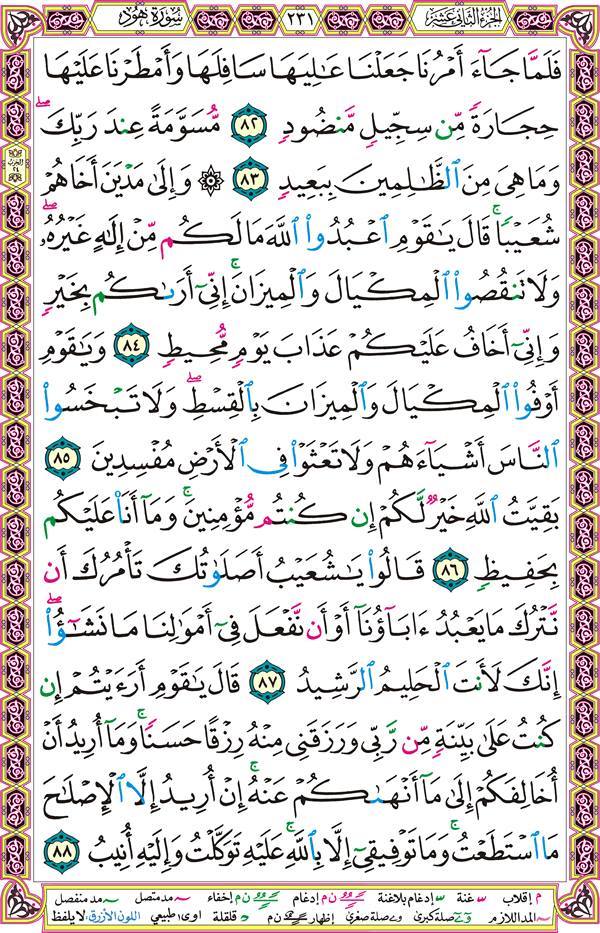 سُورَةُ هُود
٢٣١
الجزء الثاني عشر
فَلَمَّا جَآءَ أَمْرُنَا جَعَلْنَا عَٰلِيَهَا سَافِلَهَا وَأَمْطَرْنَا عَلَيْهَا
حِجَارَةً مِّن سِجِّيلٍ مَّنضُودٍ ٨٢ مُّسَوَّمَةً عِندَ رَبِّكَۖ
وَمَا هِىَ مِنَ ٱلظَّٰلِمِينَ بِبَعِيدٍ ٨٣ ۞ وَإِلَىٰ مَدْيَنَ أَخَاهُمْ
شُعَيْبًاۚ قَالَ يَٰقَوْمِ ٱعْبُدُوا۟ ٱللَّهَ مَا لَكُم مِّنْ إِلَٰهٍ غَيْرُهُۥۖ
وَلَا تَنقُصُوا۟ ٱلْمِكْيَالَ وَٱلْمِيزَانَۚ إِنِّىٓ أَرَىٰكُم بِخَيْرٍ
وَإِنِّىٓ أَخَافُ عَلَيْكُمْ عَذَابَ يَوْمٍ مُّحِيطٍ ٨٤ وَيَٰقَوْمِ
أَوْفُوا۟ ٱلْمِكْيَالَ وَٱلْمِيزَانَ بِٱلْقِسْطِۖ وَلَا تَبْخَسُوا۟
ٱلنَّاسَ أَشْيَآءَهُمْ وَلَا تَعْثَوْا۟ فِى ٱلْأَرْضِ مُفْسِدِينَ ٨٥
بَقِيَّتُ ٱللَّهِ خَيْرٌ لَّكُمْ إِن كُنتُم مُّؤْمِنِينَۚ وَمَآ أَنَا۠ عَلَيْكُم
بِحَفِيظٍ ٨٦ قَالُوا۟ يَٰشُعَيْبُ أَصَلَوٰتُكَ تَأْمُرُكَ أَن
نَّتْرُكَ مَا يَعْبُدُ ءَابَآؤُنَآ أَوْ أَن نَّفْعَلَ فِىٓ أَمْوَٰلِنَا مَا نَشَٰٓؤُا۟ۖ
إِنَّكَ لَأَنتَ ٱلْحَلِيمُ ٱلرَّشِيدُ ٨٧ قَالَ يَٰقَوْمِ أَرَءَيْتُمْ إِن
كُنتُ عَلَىٰ بَيِّنَةٍ مِّن رَّبِّى وَرَزَقَنِى مِنْهُ رِزْقًا حَسَنًاۚ وَمَآ أُرِيدُ أَنْ
أُخَالِفَكُمْ إِلَىٰ مَآ أَنْهَىٰكُمْ عَنْهُۚ إِنْ أُرِيدُ إِلَّا ٱلْإِصْلَٰحَ
مَا ٱسْتَطَعْتُۚ وَمَا تَوْفِيقِىٓ إِلَّا بِٱللَّهِۚ عَلَيْهِ تَوَكَّلْتُ وَإِلَيْهِ أُنِيبُ ٨٨
م إقلاب غنة إدغام بلاغنة ن م إدغام ن م إخفاء مد متصل مد منفصل
المد اللازم صلة كبرى صلة صغرى إظهار ن م قلقلة اوى طبيعي اللون الأزرق: لا يلفظ